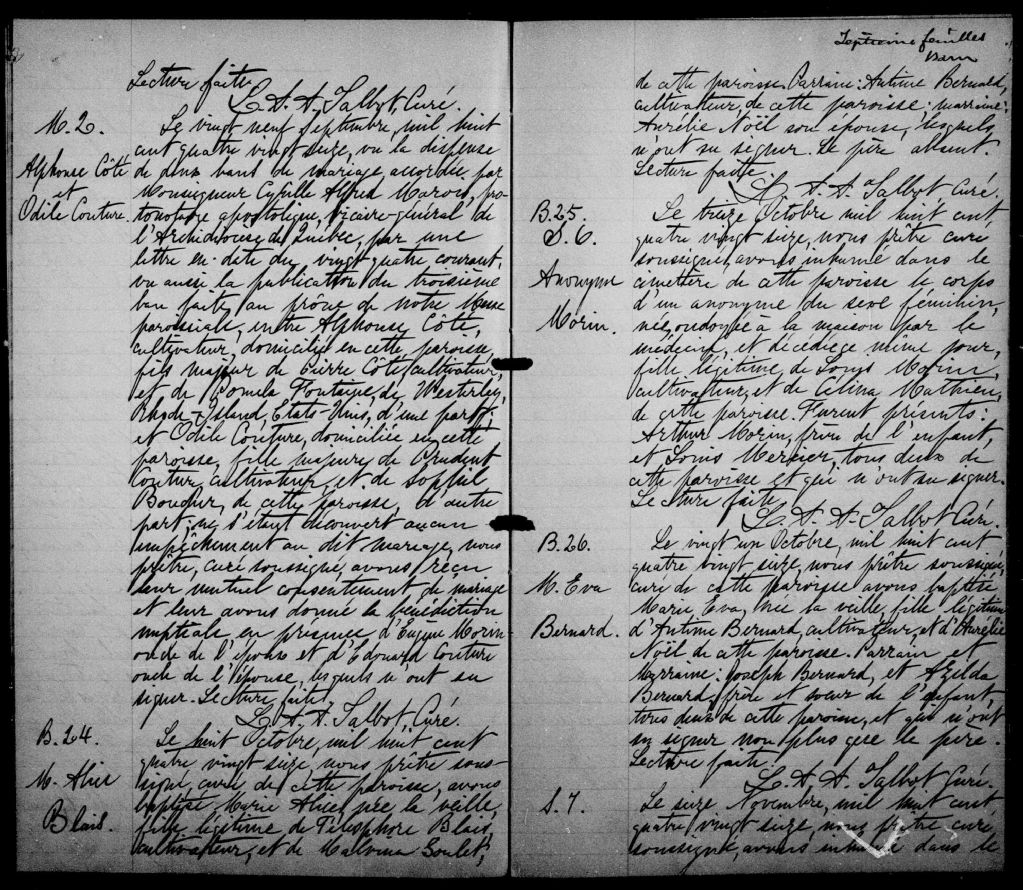 Lecture faite.
L. A. A. Talbot, Curé.
M. 2.
Alphonse Côté
et
Odile Couture.
Le vingt neuf Septembre, mil huit
cent quatre vingt seize, vu la dispense
de deux bans de mariage accordée par
Monseigneur Cyrille Alfred Marois, pro-
tonotaire apostolique, vicaire-général de
l'Archidiocèse de Québec, par une
lettre en date du vingt quatre courant,
vu aussi la publication du troisième
ban faite au prône de notre Messe
paroissiale, entre Alphonse Côté,
cultivateur, domicilié en cette paroisse,
fils majeur de Pierre Côté, cultivateur,
et de Romela Fontaine, de Westerley,
Rhode-Island, Etats-Unis, d'une part;
et Odile Couture, domiciliée en cette
paroisse, fille majeure de Prudent
Couture, cultivateur, et de
Boucher, de cette paroisse, d'autre
part; ne s'étant découvert aucun
empêchement au dit mariage, nous
prêtre, curé soussigné, avons reçu
leur mutuel consentement de mariage
et leur avons donné la bénédiction
nuptiale, en présence d'Eugène Morin
oncle de l'époux et d'Edouard Couture
oncle de l'épouse, lesquels n'ont su
signer. Lecture faite.
L. A. A. Talbot, Curé.
B. 24.
M. Alice
Blais.
Le huit Octobre, mil huit cent
quatre vingt seize, nous prêtre sous-
signé, curé de cette paroisse, avons
baptisé Marie Alice, née la veille,
fille légitime de Télesphore Blais,
cultivateur, et de Malvina Goulet,
feuilles
de cette paroisse. Parrain: Antime Bernard,
cultivateur, de cette paroisse; marraine:
Aurélie Noël son épouse, lesquels
n'ont su signer. Le père absent.
Lecture faite.
L. A. A. Talbot Curé.
B. 25.
S. 6.
Anonyme
Morin.
Le treize Octobre mil huit cent
quatre vingt seize, nous prêtre curé
soussigné, avons inhumé dans le
cimetière de cette paroisse le corps
d'un anonyme du sexe féminin,
née, ondoyée à la maison par le
médecin, et décédée ce même jour,
fille légitime de Louis Morin,
cultivateur, et de Célina Mathieu,
de cette paroisse. Furent présents:
Arthur Morin, frère de l'enfant,
et Louis Mercier, tous deux de
cette paroisse et qui n'ont su signer.
Lecture faite.
L. A. A. Talbot Curé.
B. 26.
M. Eva
Bernard.
Le vingt un Octobre, mil huit cent
quatre vingt seize, nous prêtre soussigné,
curé de cette paroisse avons baptisé
Marie Eva, née la veille, fille légitime
d'Antime Bernard, cultivateur, et d'Aurélie
Noël de cette paroisse. Parrain et
Marraine: Joseph Bernard, et Azilda
Bernard, frère et soeur de l'enfant,
tous deux de cette paroisse, et qui n'ont
su signer non plus que le père.
Lecture faite.
L. A. A. Talbot, Curé.
S. 7.
Le seize Novembre, mil huit cent
quatre vingt seize, nous prêtre curé
soussigné, avons inhumé dans le